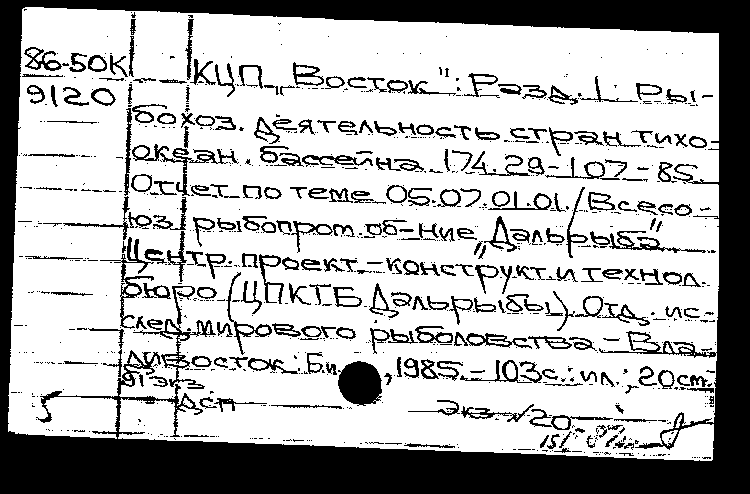 86-50К
9120
КЦП „Восток": Разд. 1. Ры-
бохоз. деятельность стран тихо-
океан. бассейна. 174.29-107-85.
Отчет по теме 05.07.01.01./Всесо-
юз. рыбопром. об-ние „Дальрыба",
Центр. проект.-конструкт. и технол.
бюро (ЦПКТБ Дальрыбы). Отд. ис-
след. мирового рыболовства.-Вла-
дивосток: Б.и., 1985.-103с.: ил.; 20см.
91 экз
ДСП
5
Экз №20